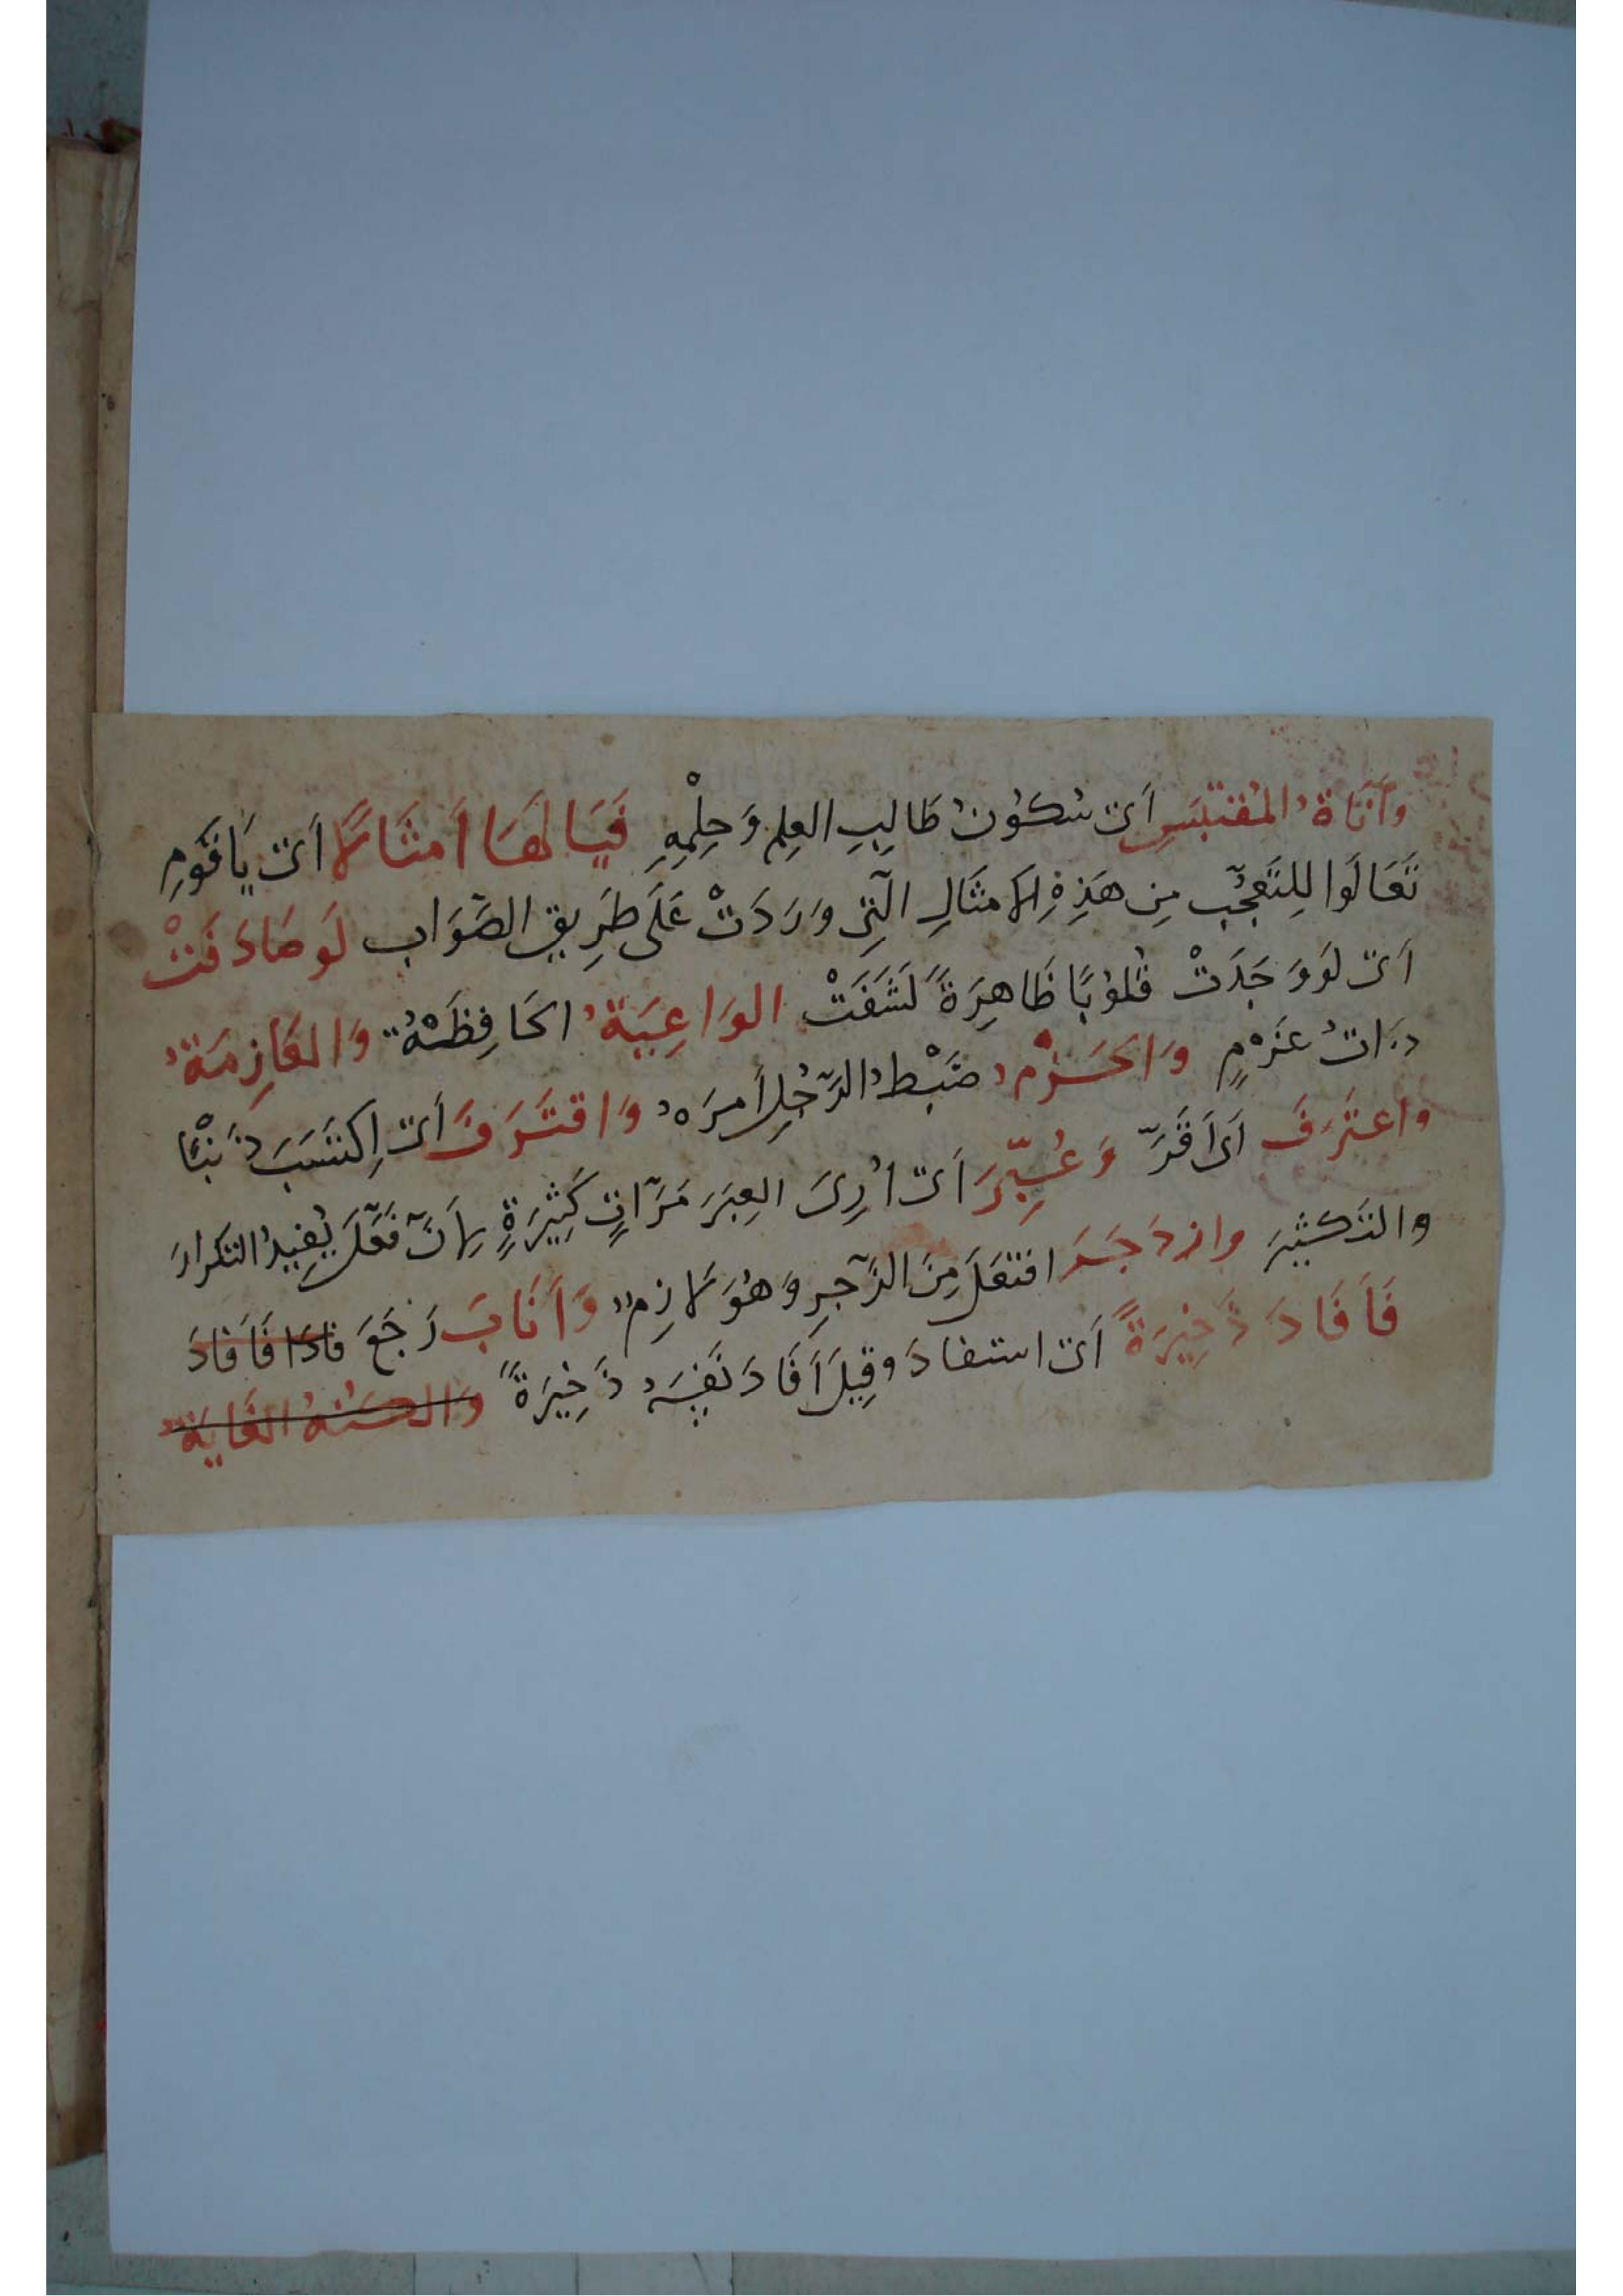 وَأَنَاةُ المُقتَبِسِ أَىْ سُكُونُ طَالِبِ العِلمِ وَحِلْمِهِ فَيَا لَهَا أَمثَالًا أَىْ يَا قَومِ
تَعَالَوا لِلتَّعَجُّبِ مِن هَذِهِ الأَمثَالِ الَّتِى وَرَدَتْ عَلَى طَرِيقِ الصَّوَابِ لَو صَادَفَتْ
أَىْ لَو وَجَدَتْ قُلُوبًا ظَاهِرَةً لَشَفَتْ الوَاعِيَةُ الحَافِظَةُ وَالعَازِمَةُ
ذَاتُ عَزْمٍ وَالحَزْمُ ضَبْطُ الرَّجُلِ أَمرَهُ وَاقتَرَفَ أَىْ اِكتَسَبَ ذَنْبًا
وَاعتَرَفَ أَى أَقَرَّ وَعُبِّرَ أَىْ أُرِىَ العِبَرَ مَرَّاتٍ كَثِيرَةٍ لِأَنَّ فَعَّلَ يُفِيدُ التكرارَ
والتَكثيرَ وازدَجَرَ افتَعَلَ مِنَ الزَّجرِ وَهُوَ لَازِمٌ وَأَنَابَ رَجَعَ فادا فَأَفَادَ
فَأَفَادَ ذَخِيرَةً أَىْ استفادَ وقِيلَ أَفَادَ نَفسَهُ ذَخِيرَةً والكنهُ الغَايَةُ